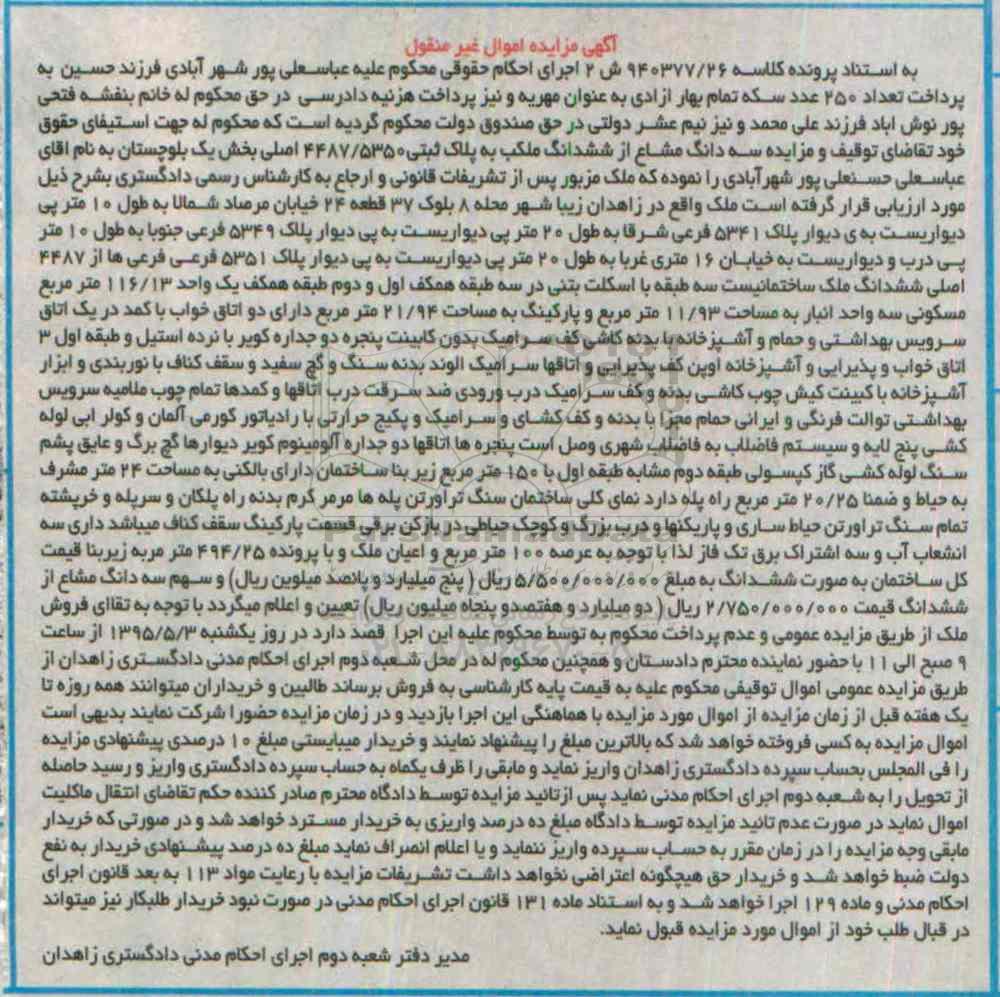 آگهی مزایده اموال غیر منقول
به استناد پرونده کلاسه ۹۴۰۳۷۷/۲۶ ش ۲ اجرای احکام حقوقی محکوم علیه عباسعلی پور شهر آبادی فرزند حسین به
پرداخت تعداد ۲۵۰ عدد سکه تمام بهار ازادی به عنوان مهریه و نیز پرداخت هزنیه دادرسی در حق محکوم له خانم بنفشه فتحی
پور نوش اباد فرزند علی محمد و نیز نیم عشر دولتی در حق صندوق دولت محکوم گردیه است که محکوم له جهت استیفای حقوق
خود تقاضای توقیف و مزایده سه دانگ مشاع از ششدانگ ملکب به پلاک ثبتی ۴۴۸۷/۵۳۵۰ اصلی بخش یک بلوچستان به نام اقای
عباسعلی حسنعلی پور شهرآبادی را نموده که ملک مزبور پس از تشریفات قانونی و ارجاع به کارشناس رسمی دادگستری بشرح ذیل
مورد ارزیابی قرار گرفته است ملک واقع در زاهدان زیبا شهر محله ۸ بلوک ۳۷ قطعه ۲۴ خیابان مرصاد شمالا به طول ۱۰ متر پی
دیواریست به ی دیوار پلاک ۵۳۴۱ فرعی شرقا به طول ۲۰ متر پی دیواریست به پی دیوار پلاک ۵۳۴۹ فرعی جنوبا به طول ۱۰ متر
پی درب و دیواریست به خیابان ۱۶ متری غربا به طول ۲۰ متر پی دیواریست به پی دیوار پلاک ۵۳۵۱ فرعی فرعی ها از ۴۴۸۷
اصلی ششدانگ ملک ساختمانیست سه طبقه با اسکلت بتنی در سه طبقه همکف اول و دوم طبقه همکف یک واحد ۱۱۶/۱۳ متر مربع
مسکونی سه واحد انبار به مساحت ۱۱/۹۳ متر مربع و پارکینگ به مساحت ۲۱/۹۴ متر مربع دارای دو اتاق خواب با کمد در یک اتاق
سرویس بهداشتی و حمام و آشپزخانه با بدنه کاشی کف سرامیک بدون کابینت پنجره دو جداره کویر با نرده استیل و طبقه اول ۳
اتاق خواب و پذیرایی و آشپزخانه اوپن کف پذیرایی و اتاقها سرامیک الوند بدنه سنگ و گچ سفید و سقف کناف با نوربندی و ابزار
آشپزخانه با کبینت کیش چوب کاشی بدنه و کف سرامیک درب ورودی ضد سرقت درب اتاقها و کمدها تمام چوب ملامیه سرویس
بهداشتی توالت فرنگی و ایرانی حمام مجزا با بدنه و کف کشای و سرامیک و پکیج حرارتی با رادیاتور کورمی آلمان و کولر ابی لوله
کشی پنج لایه و سیستم فاضلاب به فاضلاب شهری وصل است پنجره ها اتاقها دو جداره آلومینوم کویر دیوارها گچ برگ و عایق پشم
سنگ لوله کشی گاز کپسولی طبقه دوم مشابه طبقه اول با ۱۵۰ متر مربع زیر بنا ساختمان دارای بالکنی به مساحت ۲۴ متر مشرف
به حیاط و ضمنا ۲۰/۲۵ متر مربع راه پله دارد نمای کلی ساختمان سنگ تراورتن پله ها مرمر کرم بدنه راه پلکان و سرپله و خرپشته
تمام سنگ تراورتن حیاط ساری و پاریکنها و درب بزرگ و کوچک حیاطی در بازکن برقی قسمت پارکینگ سقف کناف میباشد داری سه
انشعاب آب و سه اشتراک برق تک فاز لذا با توجه به عرصه ۱۰۰ متر مربع و اعیان ملک و با پرونده ۴۹۴/۲۵ متر مربه زیربنا قیمت
کل ساختمان به صورت ششدانگ به مبلغ ۵/۵۰۰/۰۰۰/۰۰۰ ریال ( پنج میلیارد و پانصد میلوین ریال) و سهم سه دانگ مشاع از
ششدانگ قیمت ۲/۷۵۰/۰۰۰/۰۰۰ ریال ( دو میلیارد و هفتصدو پنجاه میلیون ریال) تعیین و اعلام میگردد با توجه به تقاای فروش
ملک از طریق مزایده عمومی و عدم پرداخت محکوم به توسط محکوم علیه این اجرا قصد دارد در روز یکشنبه ۱۳۹۵/۵/۳ از ساعت
۹ صبح الی ۱۱ با حضور نماینده محترم دادستان و همچنین محکوم له در محل شعبه دوم اجرای احکام مدنی دادگستری زاهدان از
طریق مزایده عمومی اموال توقیفی محکوم علیه به قیمت پایه کارشناسی به فروش برساند طالبین و خریداران میتوانند همه روزه تا
یک هفته قبل از زمان مزایده از اموال مورد مزایده با هماهنگی این اجرا بازدید و در زمان مزایده حضورا شرکت نمایند بدیهی است
اموال مزایده به کسی فروخته خواهد شد که بالاترین مبلغ را پیشنهاد نمایند و خریدار میبایستی مبلغ ۱۰ درصدی پیشنهادی مزایده
را فی المجلس بحساب سپرده دادگستری زاهدان واریز نماید و مابقی را ظرف یکماه به حساب سپرده دادگستری واریز و رسید حاصله
از تحویل را به شعبه دوم اجرای احکام مدنی نماید پس ازتائید مزایده توسط دادگاه محترم صادر کننده حکم تقاضای انتقال ماکلیت
اموال نماید در صورت عدم تائید مزایده توسط دادگاه مبلغ ده درصد واریزی به خریدار مسترد خواهد شد و در صورتی که خریدار
مابقی وجه مزایده را در زمان مقرر به حساب سپرده واریز ننماید و یا اعلام انصراف نماید مبلغ ده درصد پیشنهادی خریدار به نفع
دولت ضبط خواهد شد و خریدار حق هیچگونه اعتراضی نخواهد داشت تشریفات مزایده با رعایت مواد ۱۱۳ به بعد قانون اجرای
احکام مدنی و ماده ۱۲۹ اجرا خواهد شد و به استناد ماده ۱۳۱ قانون اجرای احکام مدنی در صورت نبود خریدار طلبکار نیز میتواند
در قبال طلب خود از اموال مورد مزایده قبول نماید.
مدیر دفتر شعبه دوم اجرای احکام مدنی دادگستری زاهدان